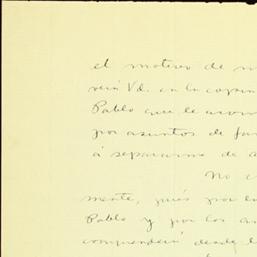 el motivo de m
verá Vd. en la copia
Pablo que le acom
por asuntos de fam
á separarme de a
No c
mente, pués por la
Pablo y por los as
comprenderá desde l